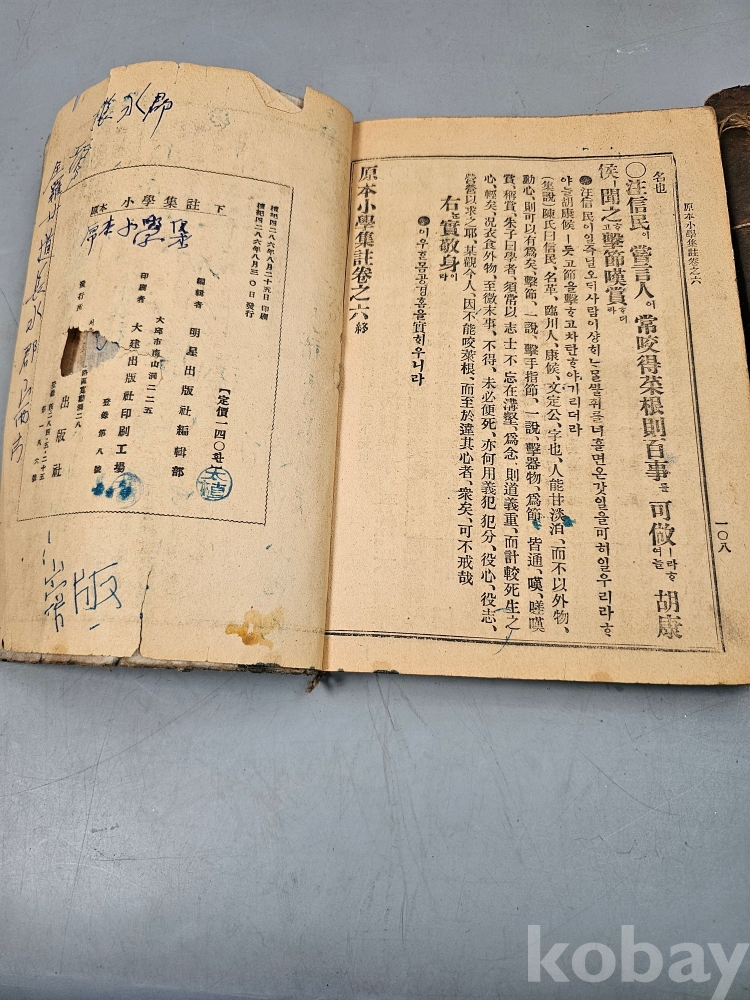 原本小學集註卷之六
一〇八
名也
○汪信民이 嘗言人이 常咬得菜根則百事를 可做ㅣ라ᄒᆞ여ᄂᆞᆯ 胡康
侯ㅣ聞之ᄒᆞ고 擊節嘆賞ᄒᆞ더라
汪信民이일즉닐오ᄃᆡ사람이상ᄒᆡᄂᆞ물ᄲᅮᆯ휘를너흘면온갓일을可히일우리라ᄒᆞ
야ᄂᆞᆯ胡康侯ㅣ듯고節을擊ᄒᆞ고차탄ᄒᆞ야기리더라
(集說)陳氏曰信民、名革、臨川人、康侯、文定公、字也、人能甘淡泊、而不以外物、
動心、則可以有爲矣、擊節、一說、擊手指節、一說、擊器物、爲節、皆通、嘆、嗟嘆
賞、稱賞、朱子曰學者、須常以志士不忘在溝壑、爲念、則道義重、而計較死生之
心、輕矣、況衣食外物、至微末事、不得、未必便死、亦何用義犯、犯分、役心、役志、
營營以求之耶、某觀今人、因不能咬菜根、而至於違其心者、衆矣、可不戒哉
右는實敬身이라
이우ᄂᆞᆫ몸공경홈을實히우니라
原本小學集註卷之六 終
檀紀四二八六年八月二十五日 印刷
檀紀四二八六年八月三〇日 發行
原本 小學集註 下
【定價一四〇환】
編輯者 明星出版社編輯部
大邱市南山洞二二五
印刷者 大建出版社印刷工場
登錄第八號
發行所
出版社
長水郡
原本小學集
版